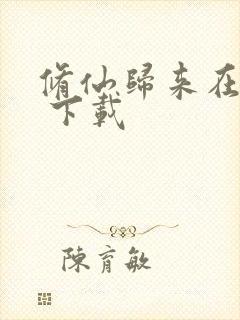 脩仙歸来在
下載
陳育敏